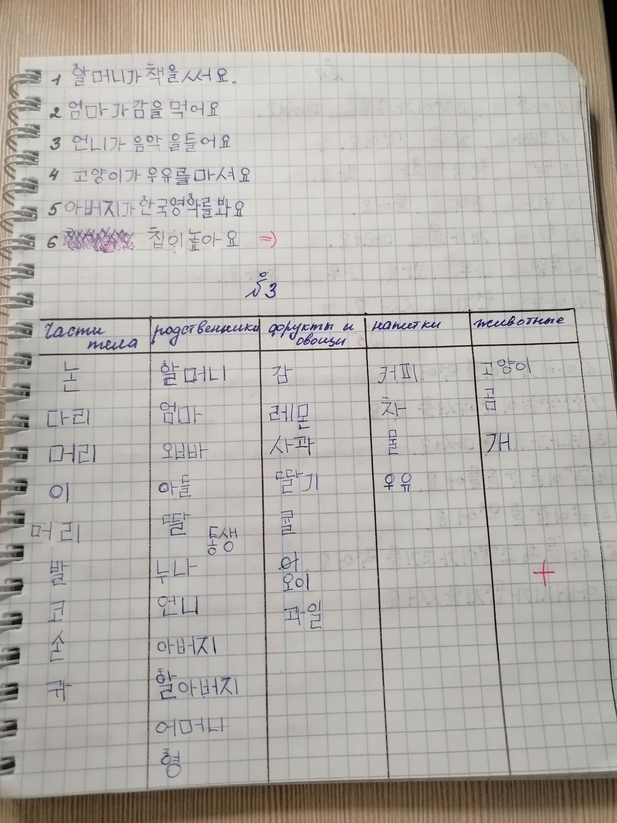 1 할머니가 책을 써서요.
2 엄마가 감을 먹어요
3 언니가 음악 을들어요
4 고양이가 우유를마셔요
5 아버지가한국영학를봐요
6 집이높아요 =)
№3
Части тела родственники форукты и овощи напитки животные
눈 할머니 감 커피 고양이
다리 엄마 레몬 차 곰
머리 오빠 사과 물 개
이 아들 딸기 우유
머리 딸 동생 귤
발 누나 오이
코 언니 과일
손 아버지
귀 할아버지
어머니
형
+